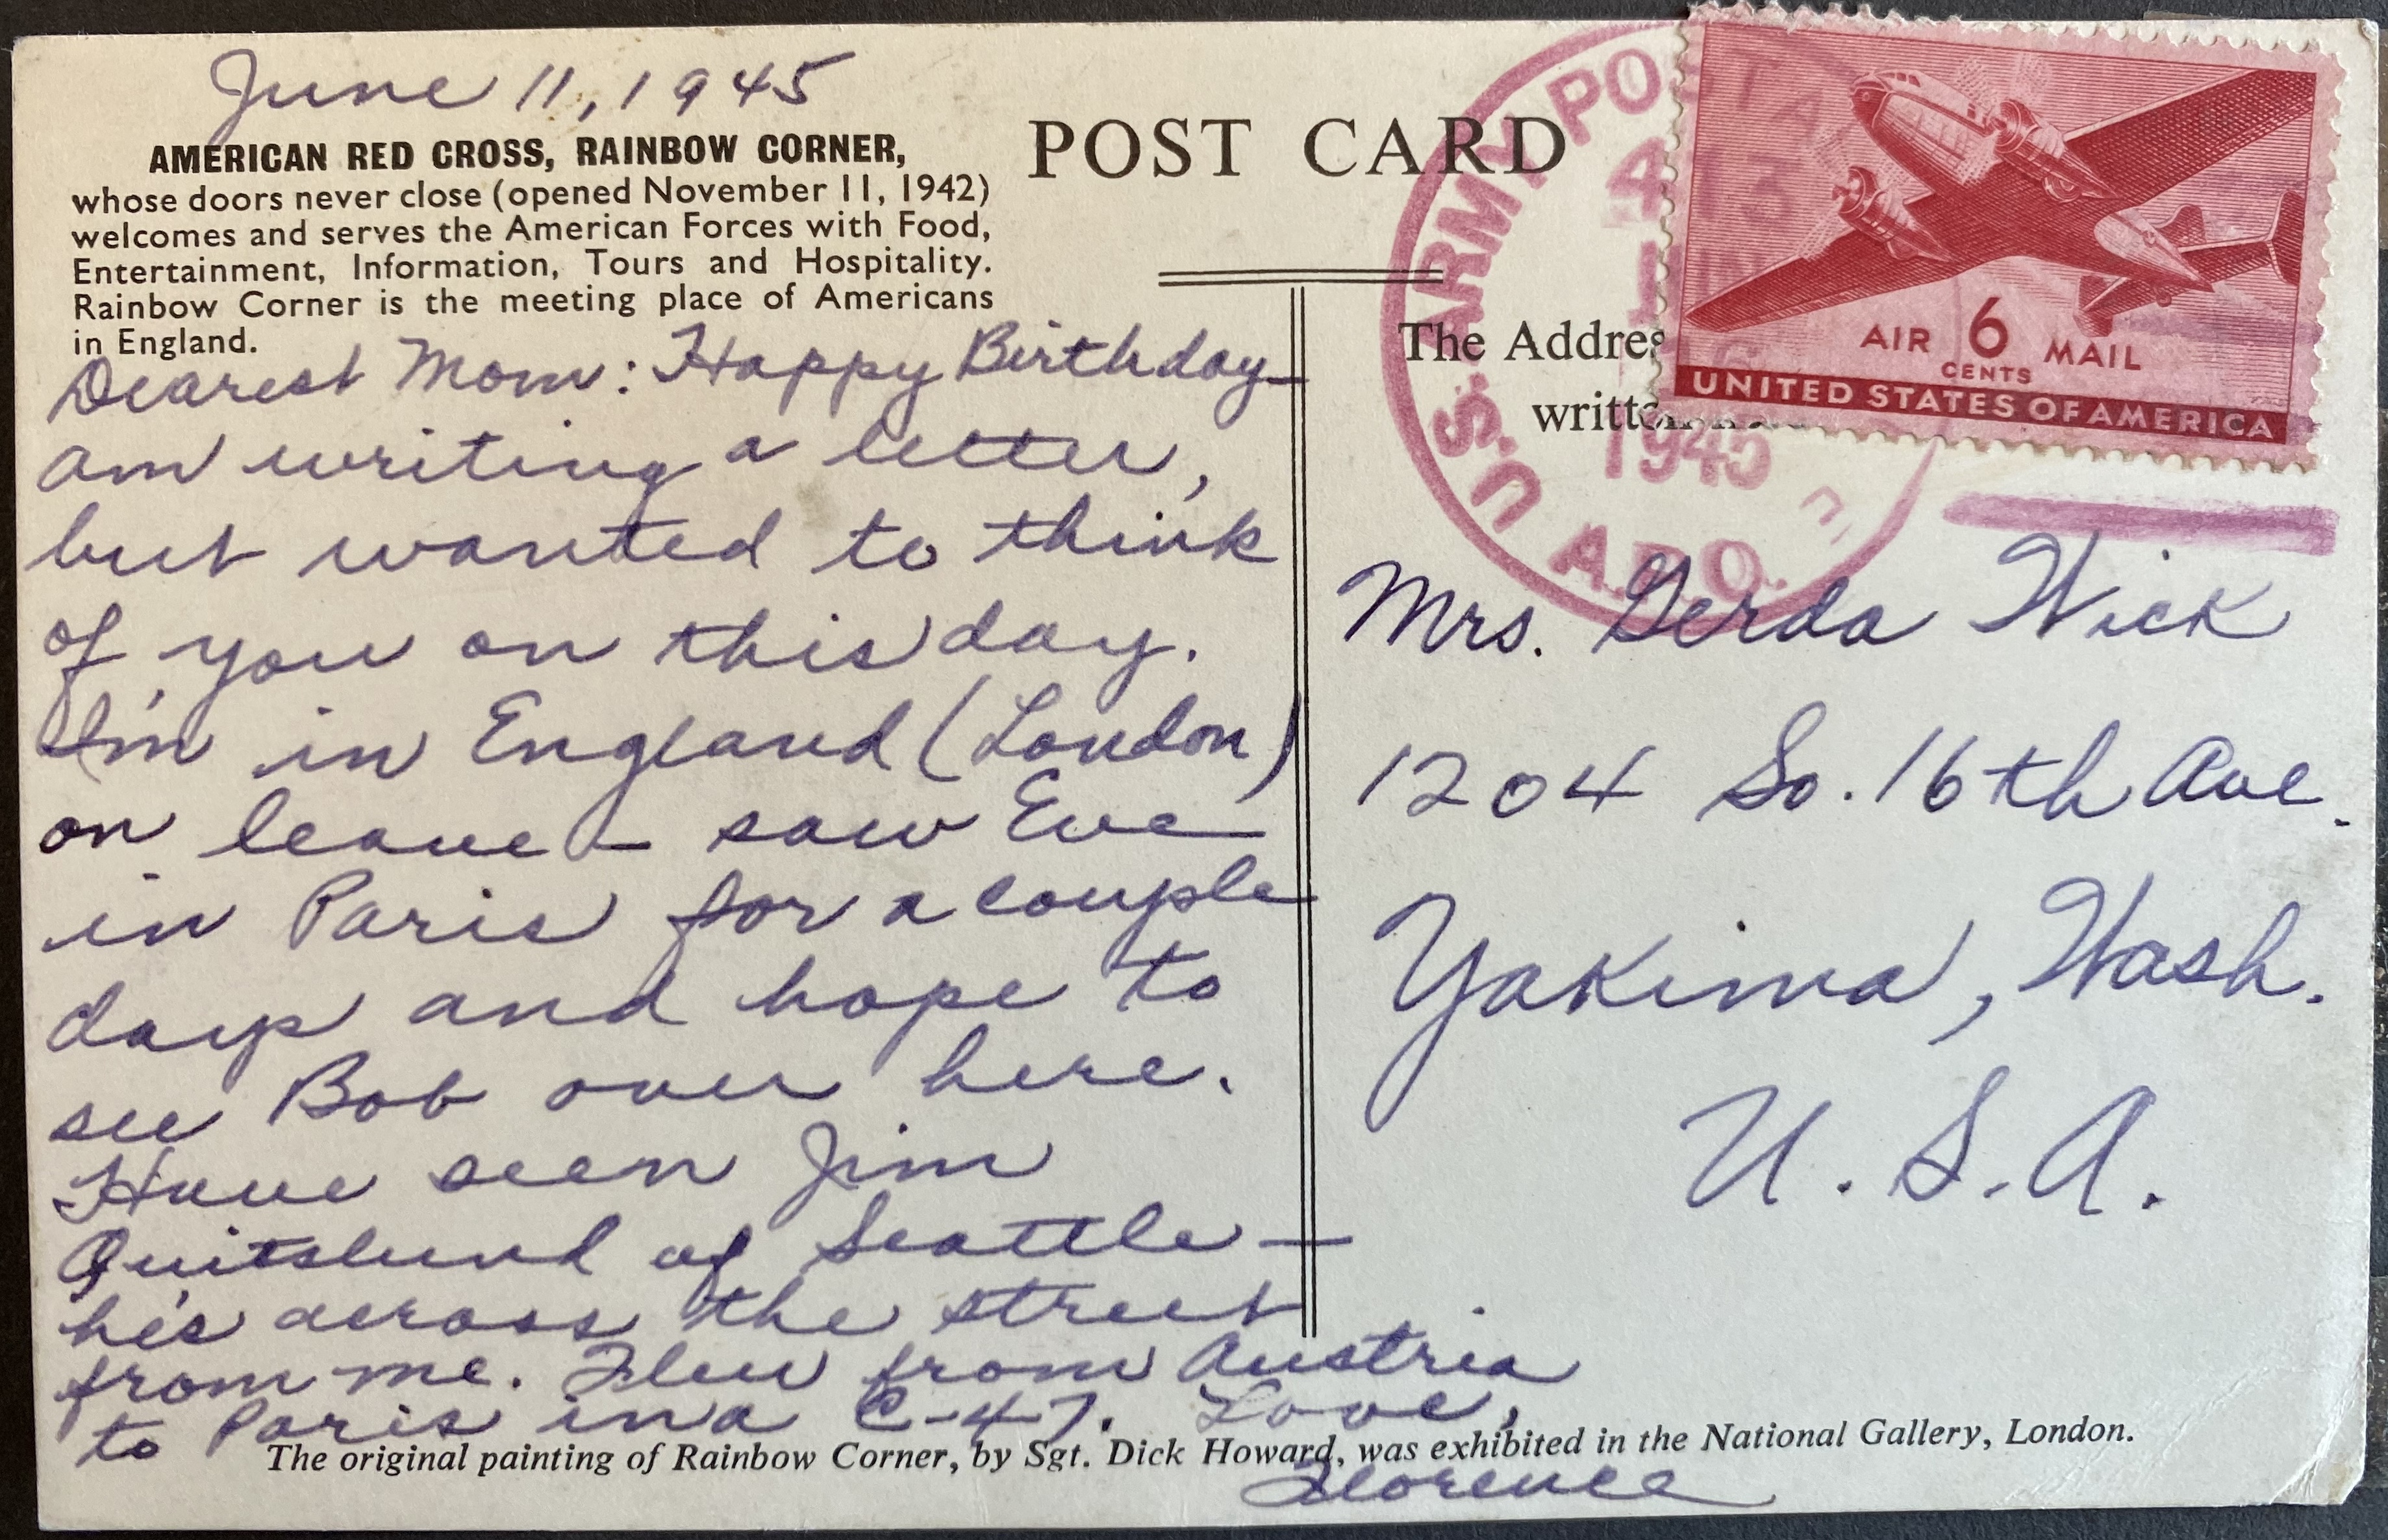 June 11, 1945
AMERICAN RED CROSS, RAINBOW CORNER,
whose doors never close (opened November 11, 1942)
welcomes and serves the American Forces with Food,
Entertainment, Information, Tours and Hospitality.
Rainbow Corner is the meeting place of Americans
in England.
Dearest Mom: Happy Birthday—
am writing a letter,
but wanted to think
of you on this day.
I'm in England (London)
on leave — saw Eve
in Paris for a couple
days and hope to
see Bob over here.
Have seen Jim
Quitslund of Seattle —
he's across the street
from me. Flew from Austria
to Paris in a C-47. Love,
Florence
The original painting of Rainbow Corner, by Sgt. Dick Howard, was exhibited in the National Gallery, London.
POST CARD
The Addres
U.S. ARMY POSTAL
1945
A.P.O.
AIR 6 MAIL
CENTS
UNITED STATES OF AMERICA
Mrs. Gerda Wick
1204 So. 16th Ave.
Yakima, Wash.
U.S.A.